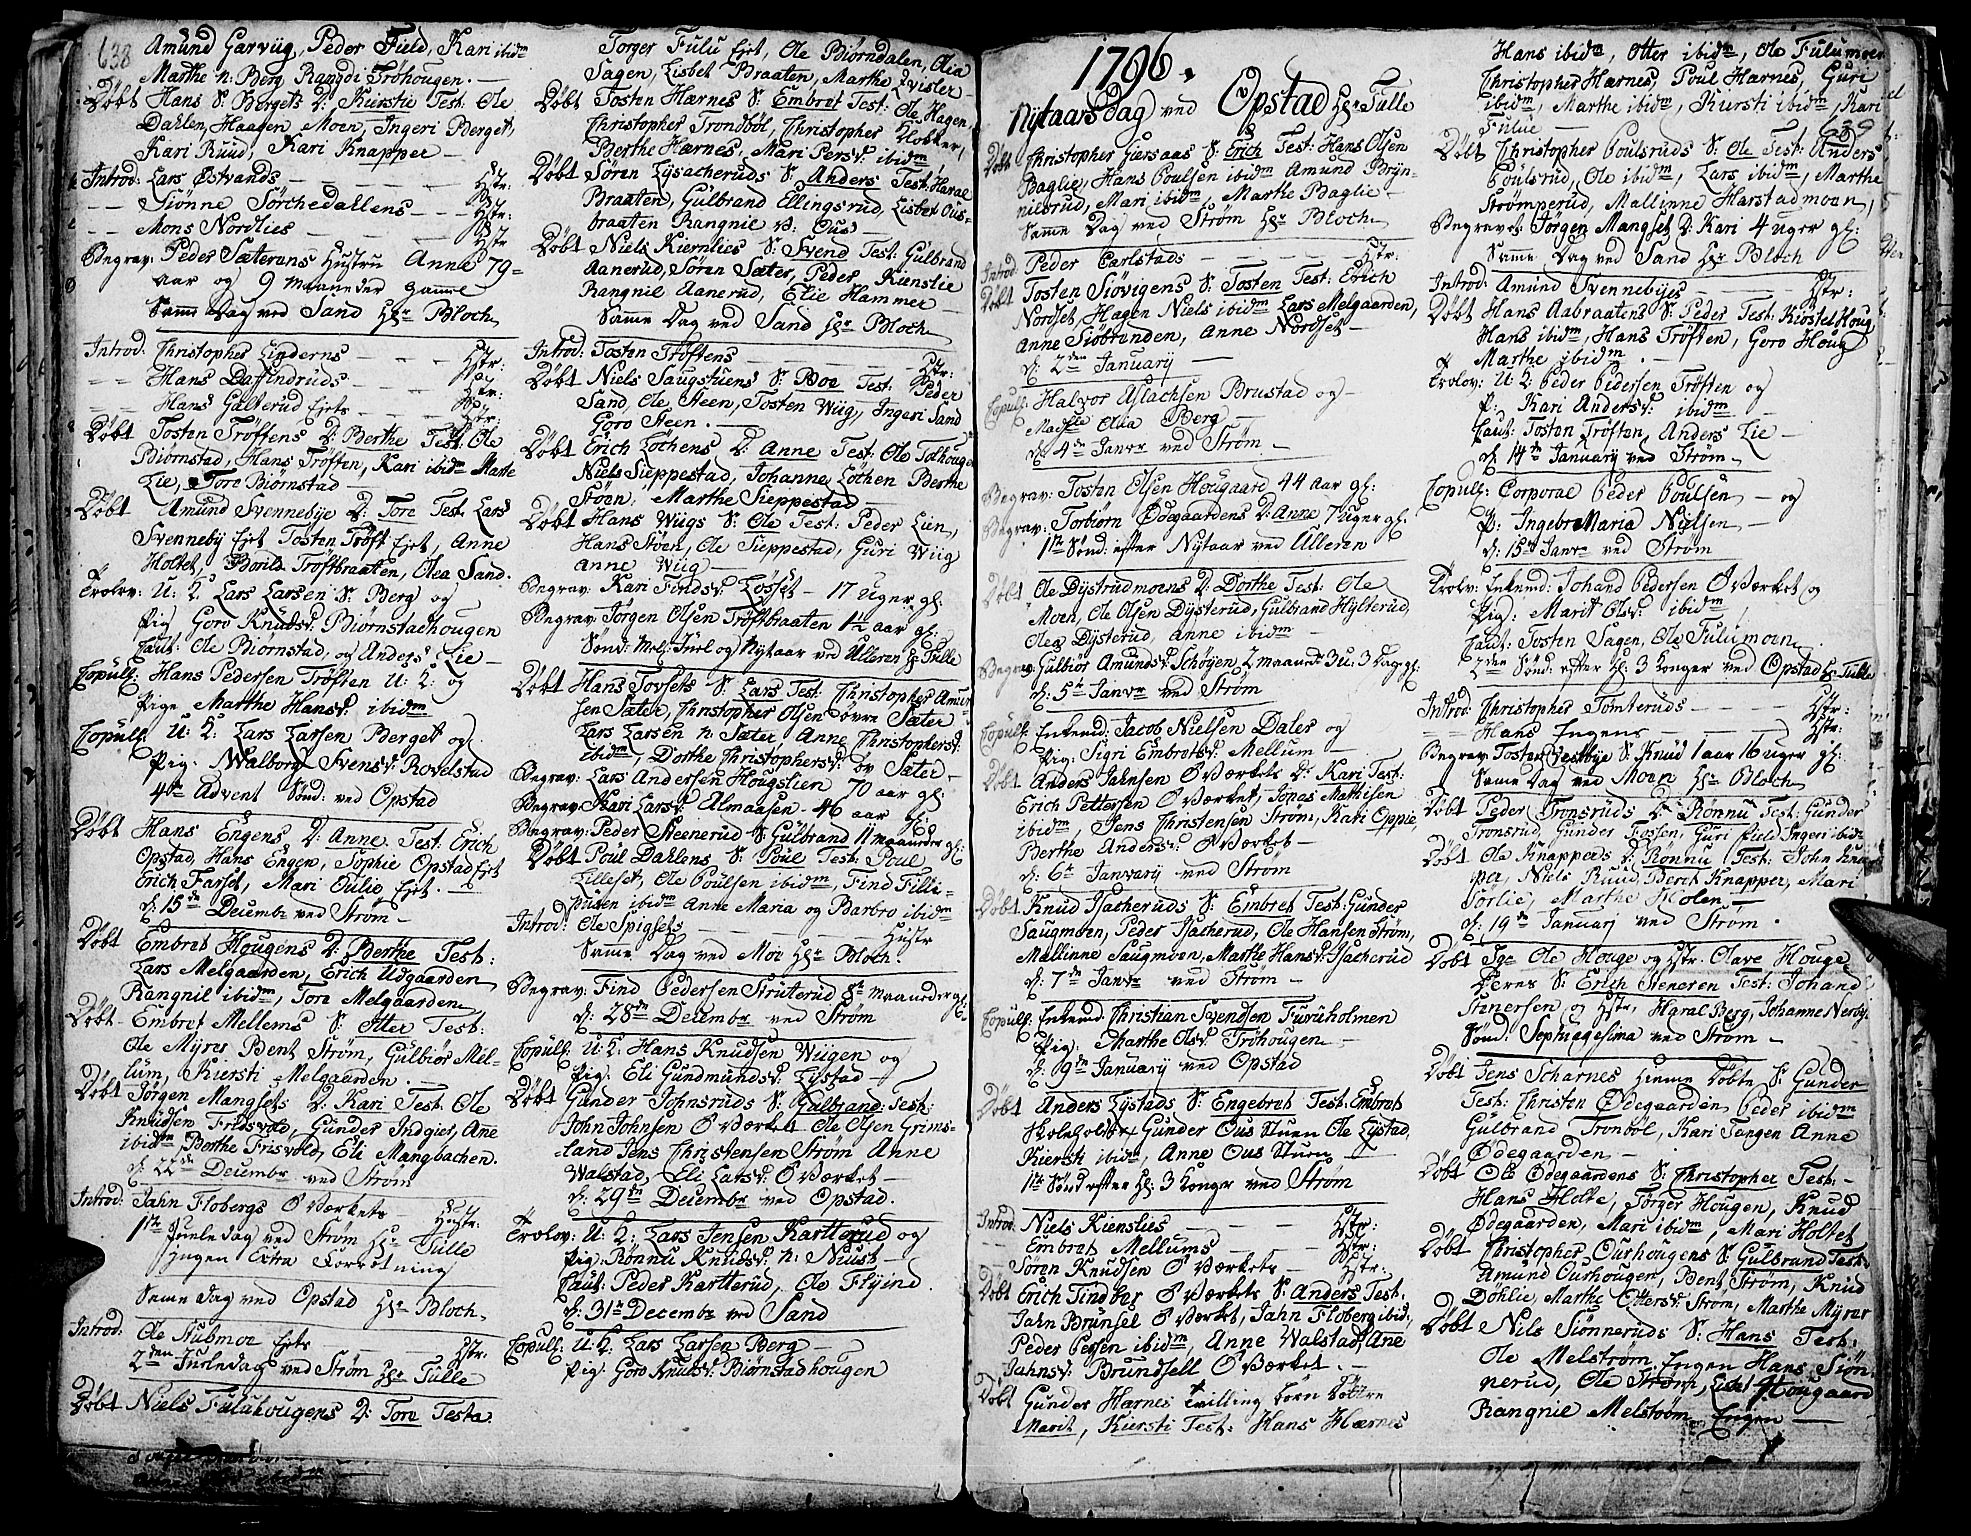 638
Amund Garviig, Peder Field, Kari ibidm
Marthe n: Berg, Rangdi Trøhougen. —
Døbt Hans S: Bergets D: Kierstie Test: Ole
Dahlen, Haagen Moen, Ingeri Berget,
Kari Ruud, Kari Knapper —
Introd: Lars Østvands — Hstr:
— Siønne Sørchedallens — Hstr:
— Mons Nordlies — Hstr
Begrav: Peder Sæterens Hustru Anne 79
aar og 9 Maaneder gamle
Samme Dag ved Sand Hr Bloch
Introd: Christopher Linderns — Hstr:
— Hans — Hstr:
— Hans Galterud Ejets — Hstr:
Døbt Tosten Trøftens D: Berthe Test: Ole
Biørnstad, Hans Trøften, Kari ibidm Marte
Lie, Tore Biørnstad
Døbt Amund Svennebye D: Tore Test: Lars
Svenneby Ejet Tosten Trøft Ejet, Anne
Holtet, Borild Trøftbraaten, Olea Sand.
Trolov: U: K: Lars Larsen S: Berg og
Pig Goro Knudsd: Biørnstadhougen
Caut: Ole Biørnstad, og Anders Lie —
Copul: Hans Pedersen Trøften U: K: og
Pige Marthe Hansd: ibidm
Copul: U: K: Lars Larsen Berget og
Pig: Walborg Svensd: Rovelstad
4de Advent Sønd: ved Opstad
Døbt Hans Engens D: Anne Test: Erich
Opstad, Hans Engen, Sophie Opstad Ejet
Erich Farset, Mari Julie Ejet. —
d: 15de Decembr ved Strøm —
Døbt Embret Hougens D: Berthe Test:
Lars Melgaarden, Erich Udgaarden
Rangnil ibidm, Tore Melgaarden
Døbt Embret Mellems S: Otter Test:
Ole Myrer Bent Strøm, Gulbiør Mel-
lum, Kiersti Melgaarden. —
Døbt Jørgen Mangsets D: Kari Test: Ole
Knudsen Fridsvold, Gunder Indgier, Anne
ibidm Berthe Frisvold, Eli Mangbachen.
d: 22de Decembr ved Strøm
Introd: Jahn Flobergs O Værkets — Hustr:
1ste Juuledag ved Strøm Hr Tulle
Ingen Extra Forretning
Samme dag ved Opstad Hr Bloch,
Introd: Ole Stubmoe Ejets — Hstr.
2den Juuledag ved Strøm Hr Tulle
Døbt Niels Fuluhougens D: Tore Testa.
Torger Fulu Ejet, Ole Biørndalen, Olia
Sagen, Lisbet Braaten, Marthe Qvisler —
Døbt Tosten Hærnes S: Embret Test: Ole Hagen,
Christopher Trondbøl, Christopher Klokker,
Berthe Hærnes, Mari Persd: ibidm
Døbt Søren Lysacheruds S: Anders Test: Haral
Braaten, Gulbrand Ellingsrud, Lisbet Ous-
braaten Rangnie v: Ous
Døbt Niels Kiernlies S: Svend Test: Gulbrand
Aanerud, Søren Sæter, Peder Kienslie
Rangnil Aanerud, Elie Hammer —
Samme Dag ved Sand Hr Bloch
Introd: Tosten Trøftens — Hstr:
Døbt Niels Saugstuens S: Boe Test: Peder
Sand, Ole Steen, Tosten Wiig, Ingeri Sand
Goro Steen. —
Døbt Erich Løthens D: Anne Test: Ole Tolhougen
Niels Sieppestad, Johanne Løthen Berthe
Støen, Marthe Sieppestad —
Døbt Hans Wiigs S: Ole Test: Peder Lien,
Hans Støen, Ole Sieppestad, Guri Wiig
Anne Wiig —
Begrav: Kari Findsd: Løsset — 17 Uger gl:
Begrav: Jørgen Olsen Trøftbraaten 1½ aar gl:
Sønd: Mel: Juel og Nytaar ved Ulleren Hr Tulle
Døbt Hans Tovsets S: Lars Test: Christopher Amund-
sen Sæter, Christopher Olsen øvre Sæter
Lars Larsen n: Sæter Anne Christophersd:
ibidm, Dorthe Christophersd: øv Sæter —
Begrav: Lars Andersen Hougslien 70 aar gl:
Begrav: Kari Larsd: Almaasen — 46 aar gl:
Begrav: Peder Steenerud S: Gulbrand 11 maaneder gl:
Døbt Poul Dahlens S: Poul Test: Poul
Lilleset, Ole Poulsen ibidm, Find Fillip-
pusen ibidm Anne Maria og Barbro ibidm
Introd: Ole Spigsets — Hustr
Samme Dag ved Moe Hr Bloch
Begrav: Find Pedersen Struterud 8te Maaneder gl:
d: 28de Decembr ved Strøm
Copul: U: K: Hans Knudsen Wiigen og
Pig: Eli Gundmundsd: Lystad —
Døbt Gunder Johnsruds S: Gulbrand Test:
John Johnsen O Værket Ole Olsen Grims-
land Jens Christensen Strøm Anne
Walstad, Eli Larsd: O Værket —
d: 29de Decembr ved Opstad.
Trolov: U: K: Lars Jensen Kartterud og
Pig: Rønnu Knudsd: n: Nuust —
Caut: Peder Kartterud, Ole Flyind
d: 31te Decembr ved Sand
Copul: U: K: Lars Larsen Berg —
Pig: Goro Knudsd: Biørnstadhougen
1796.
Nytaarsdag ved Opstad Hr Tulle
Døbt Christopher Giersaas S: Erich Test: Hans Olsen
Baglie, Hans Poulsen ibidm Amund Bryn-
nilsrud, Mari ibidm Marthe Baglie —
Samme Dag ved Strøm Hr Bloch
Introd: Peder Carlstads — Hstr:
Døbt Tosten Siøvigens S: Tosten Test: Erich
Nordset, Hagen Niels ibidm Lars Melgaarden,
Anne Siøbranden, Anne Nordset —
d: 2den January —
Copul: Halvor Aslachsen Brustad og —
Madlle Olia Berg —
d: 4de Janvr ved Strøm —
Begrav: Tosten Olsen Hougaard 44 Aar gl:
Begrav: Torbiørn Ødegaardens D: Anne 7 Uger gl:
1ste Sønd: efter Nytaar ved Ulleren
Døbt Ole Dystrudmoens D: Dorthe Test: Ole
Moen, Ole Olsen Dysterud, Gulbrand Hylterud,
Olea Dysterud, Anne ibidm —
Begrav: Gulbiør Amundsd: Schøyen, 2 maaned 3 u: 3 Dag gl:
d: 5te Janvr ved Strøm
Copul: Enkemd: Jacob Nielsen Daler og
Pig: Sigri Embretsd: Mellum —
Døbt Anders Jahnsen O Værkets D: Kari Test:
Erich Pettersen O Værket, Jonas Mathisen
ibidm, Jens Christensen Strøm, Kari Oppie,
Berthe Andersd: O Værket —
d: 6te January ved Strøm
Døbt Knud Isacheruds S: Embret Test: Gunder
Saugmoen, Peder Isacherud, Ole Hansen Strøm,
Mallinne Saugmoen, Marthe Hansd: Isacherud
d: 7de Janvr ved Strøm —
Copul: Enkemd: Christian Svendsen Furuholmen
Pig: Marthe Olsd: Trøhougen —
d: 9de January ved Opstad
Døbt Anders Lystads S: Engebret Test: Embret
Skoleholder Gunder Ous Stuen Ole Lystad,
Kiersti ibidm, Anne Ous Stuen —
1ste Sønd efter Hl: 3 Konger ved Strøm
Introd: Niels Kienslies — Hstr:
Embret Mellums — Hstr:
Søren Knudsen O Værkets — Hstr:
Døbt Erich Tindbergs O Værkets S: Anders Test:
Jahn Brunsel O Værket, Jahn Floberg ibid,
Peder Persen ibidm, Anne Walstad, Ane
Jahnsd: Brundsell O Værket. —
Døbt Gunder Hærnes Tvilling Børn Døttre
Marit, Kiersti Test: Hans Hærnes
Hans ibidm, Otter ibidm, Ole Fulumoen
Christopher Hærnes, Poul Hærnes, Guri
ibidm, Marthe ibidm, Kiersti ibidm, Kari
Fulue — 639
Døbt Christopher Poulsruds S: Ole Test: Anders
Poulsrud, Ole ibidm, Lars ibidm, Marthe
Strømperud, Mallinne Harstadmoen,
Begravet: Jørgen Mangset D: Kari 4 uger gl:
Samme Dag ved Sand Hr Bloch
Introd: Amund Svennebyes — Hstr:
Døbt Hans Aabraatens S: Peder Test: Kiøstel Houg
Hans ibidm, Hans Trøften, Goro Houg
Marthe ibidm. —
Trolov: U: K: Peder Pedersen Trøften og
P: Kari Andersd: ibidm
Caut: Tosten Trøften, Anders Lie —
d: 14de January ved Strøm —
Copul: Corporal Peder Poulsen — og
P: Ingebr Maria Nielsen —
d: 15de Janvr ved Strøm
Trolv: Enkemd: Johand Pedersen O Værket og
Pig: Marit Olsd: ibidm
Caut: Tosten Sagen, Ole Fulumoen
2den Sønd: efter Hl: 3 Konger ved Opstad Hr Tulle
Introd: Christopher Tomteruds — Hstr:
— Hans Engens — Hstr:
Begrav: Tosten Vestbye S: Knud 1 aar 16 uger gl:
Samme Dag ved Moen Hr Bloch
Døbt Peder Tronsruds D: Rønnu Test: Gunder
Tronsrud, Gunder Fossen, Guri Field, Ingeri ibid:
Døbt Ole Knappers D: Rønnu Test: John Knap-
per, Niels Ruud, Berit Knapper, Mari
Sørlie, Marthe Holen —
d: 19de January ved Strøm
Døbt Sgr Ole Houge og Hstr. Olave Houge
Deres S: Erich Steneren Test: Johand
Stenersen og Hstr, Haral Berg, Johanne Nerby.
Sønd: Sephuagesima ved Strøm —
Døbt Jens Scharnes Hiemme Døbte S: Gunder
Test: Christen Ødegaarden Peder ibidm
Gulbrand Tronbøl, Kari Tangen Anne
Ødegaarden —
Døbt Ole Ødegaardens S: Christopher Test: —
Hans Holte, Torger Hougen, Knud
Ødegaarden, Mari ibidm, Mari Holtet
Døbt Christopher Ourhougens S: Gulbrand Test:
Amund Ourhougen, Bent Strøm, Knud
Døhlie, Marthe Ottersd: Strøm, Marthe Myrer
Døbt Nils Siønneruds S: Hans Test:
Ole Melstrøm Engen Hans Siøn-
nerud, Ole Strøm, Eidel Hougaard
Rangnie Melstrøm Engen —